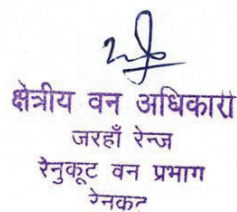 क्षेत्रीय वन अधिकारी
जरहाँ रेन्ज
रेनुकूट वन प्रभाग
रेनकूट